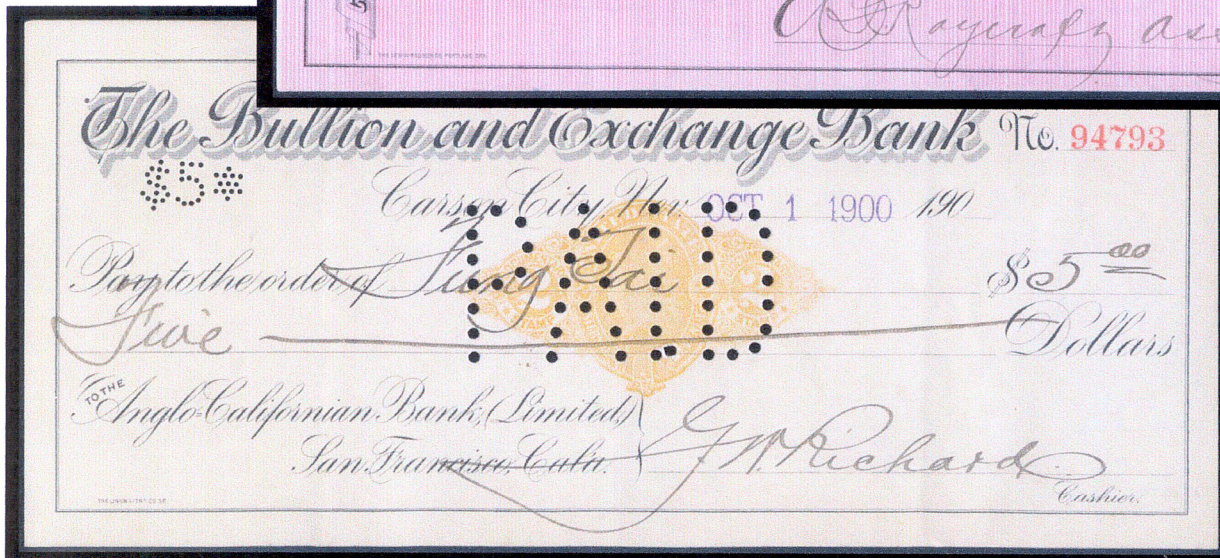 The Bullion and Exchange Bank No. 94793
$5*
Carson City, Nev. OCT 1 1900 190
Pay to the order of Fung Tai $5 00
Five Dollars
PAID
TO THE
Anglo-Californian Bank, (Limited)
San Francisco, Cala.
J. W. Richard
Cashier.